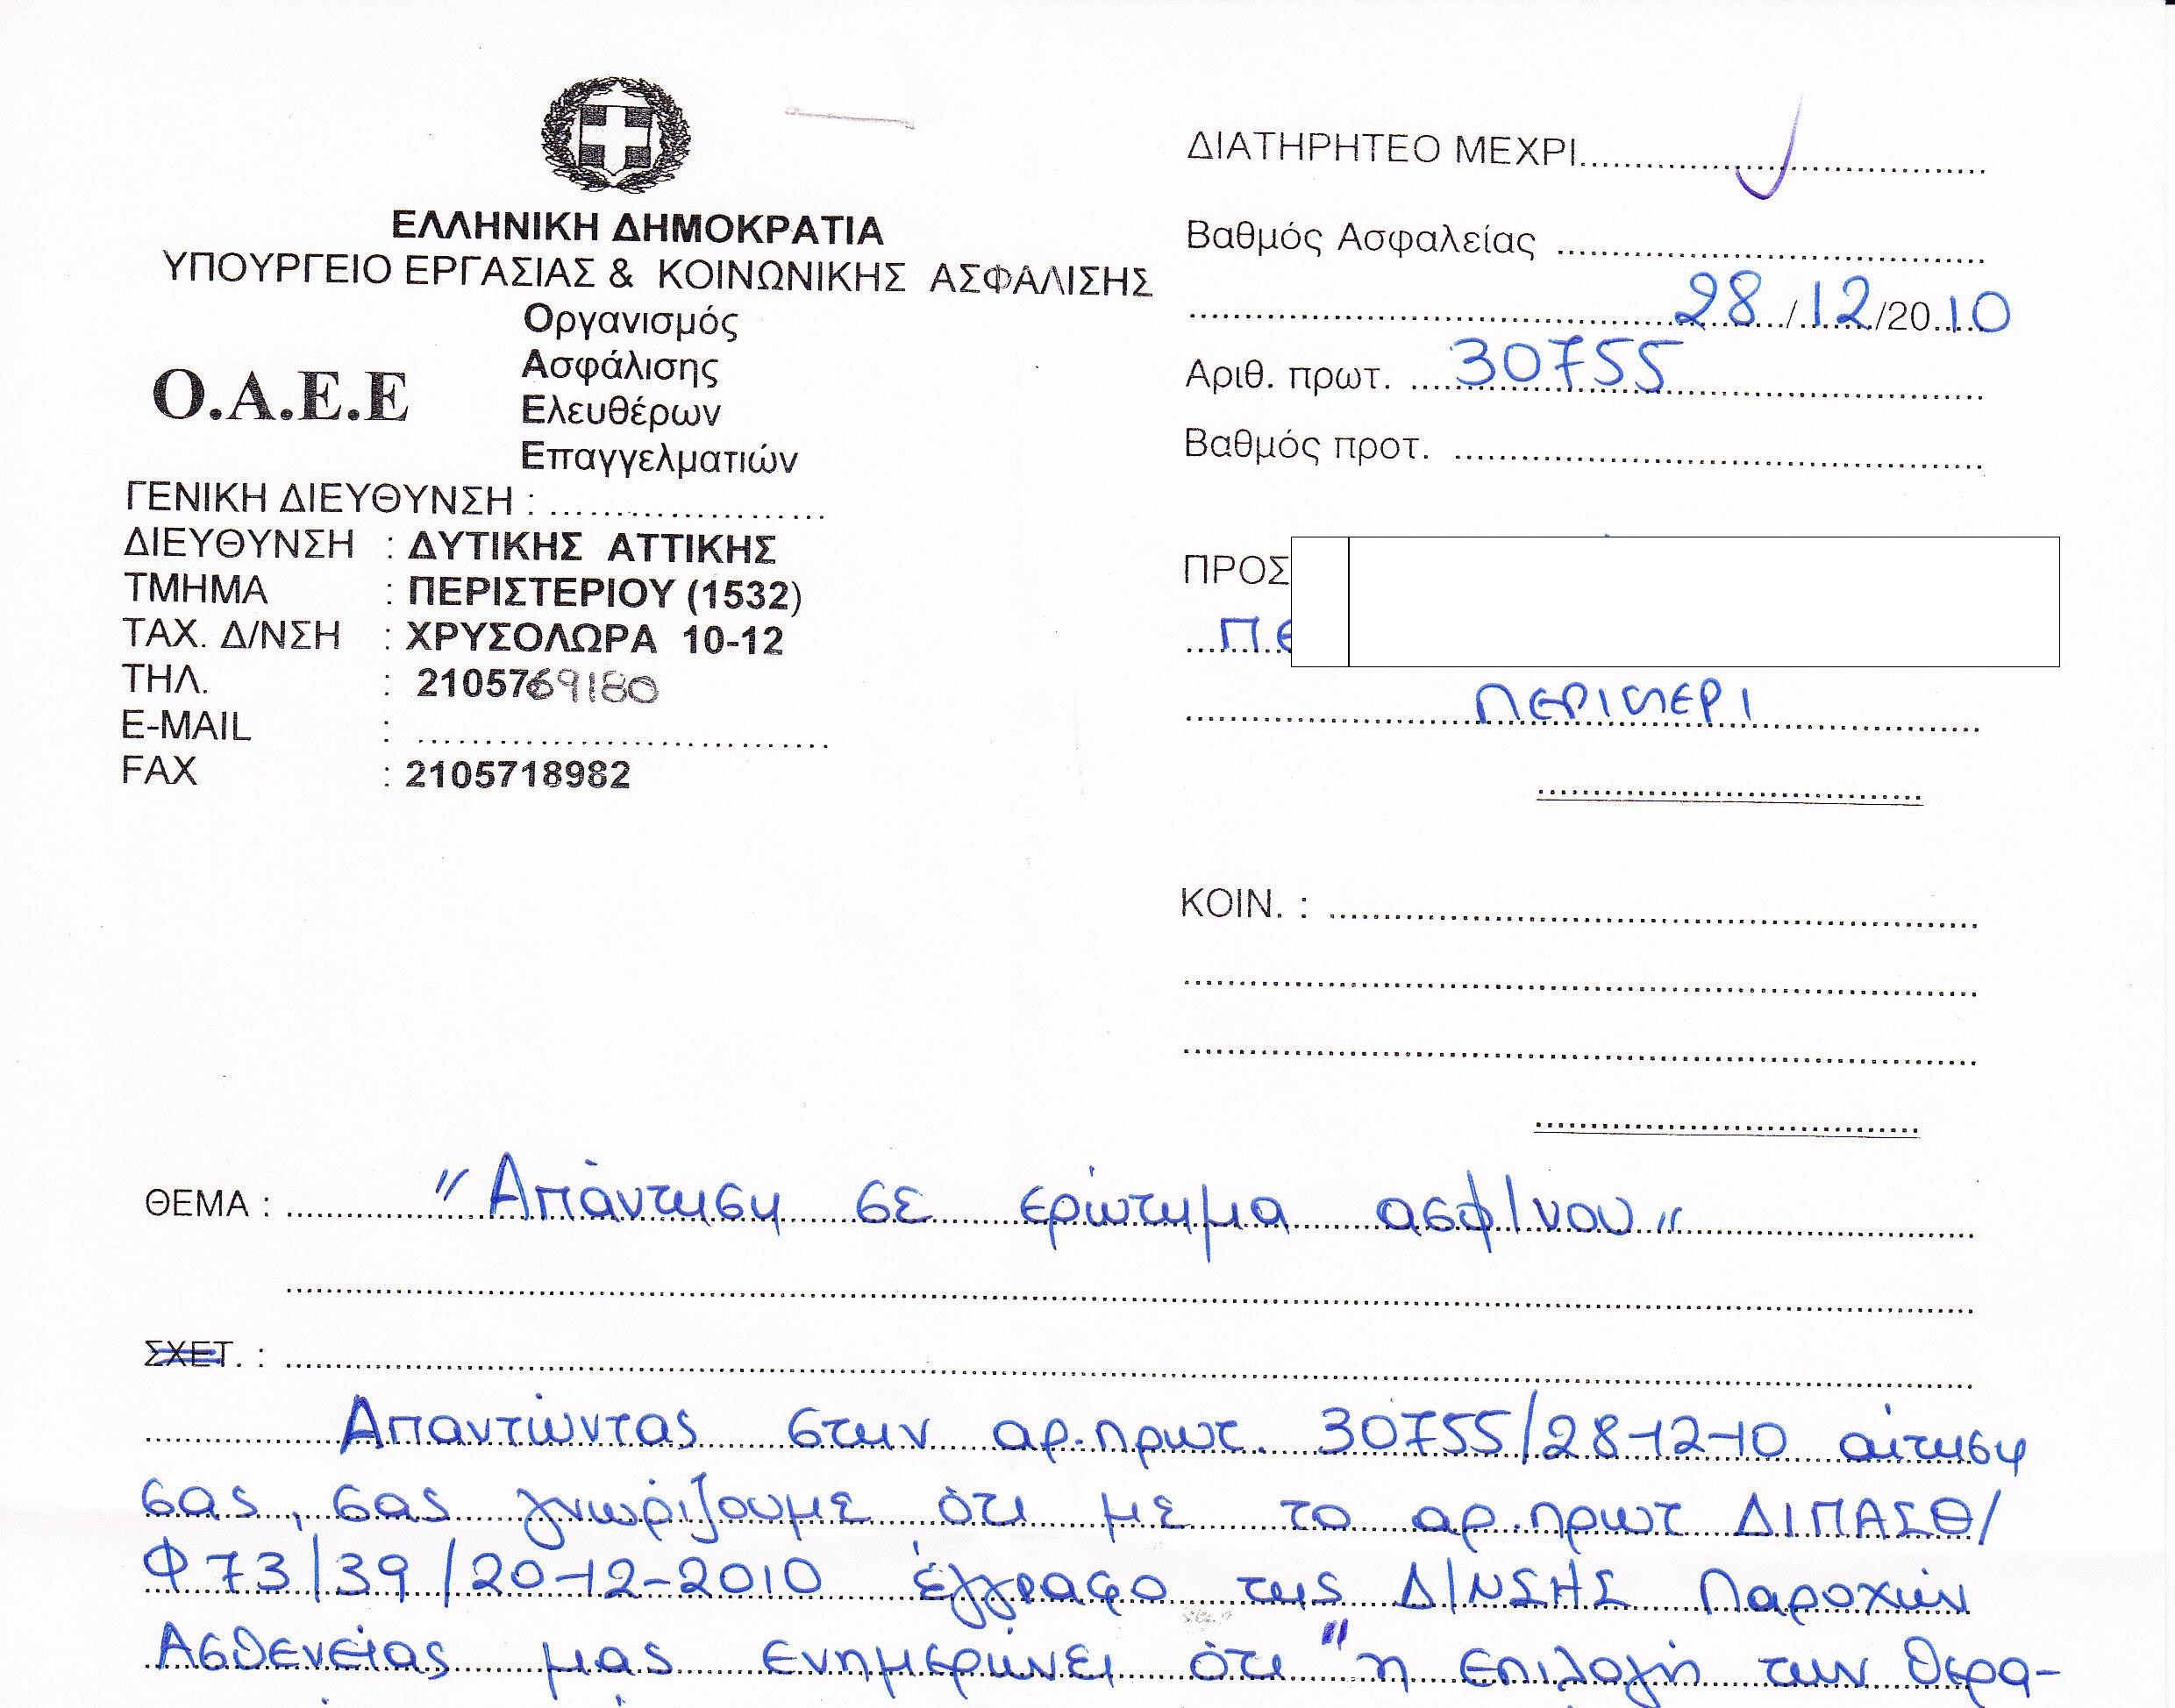 ΕΛΛΗΝΙΚΗ ΔΗΜΟΚΡΑΤΙΑ
ΥΠΟΥΡΓΕΙΟ ΕΡΓΑΣΙΑΣ & ΚΟΙΝΩΝΙΚΗΣ ΑΣΦΑΛΙΣΗΣ
Ο.Α.Ε.Ε
Οργανισμός
Ασφάλισης
Ελευθέρων
Επαγγελματιών
ΓΕΝΙΚΗ ΔΙΕΥΘΥΝΣΗ :
ΔΙΕΥΘΥΝΣΗ : ΔΥΤΙΚΗΣ ΑΤΤΙΚΗΣ
ΤΜΗΜΑ : ΠΕΡΙΣΤΕΡΙΟΥ (1532)
ΤΑΧ. Δ/ΝΣΗ : ΧΡΥΣΟΛΩΡΑ 10-12
ΤΗΛ. : 2105769180
E-MAIL :
FAX : 2105718982
ΔΙΑΤΗΡΗΤΕΟ ΜΕΧΡΙ
Βαθμός Ασφαλείας
28/12/2010
Αριθ. πρωτ. 30755
Βαθμός προτ.
ΠΡΟΣ
Πε
ΠΕΡΙΣΤΕΡΙ
ΚΟΙΝ. :
ΘΕΜΑ : "Απάντηση σε ερώτημα ασφ/νου"
ΣΧΕΤ. :
Απαντώντας στην αρ.πρωτ. 30755/28-12-10 αίτηση
σας, σας γνωρίζουμε ότι με το αρ.πρωτ ΔΙΠΑΣΘ/
Φ73/39/20-12-2010 έγγραφο της Δ/ΝΣΗΣ Παροχών
Ασθενείας μας ενημερώνει ότι "η επιλογή των θερα-